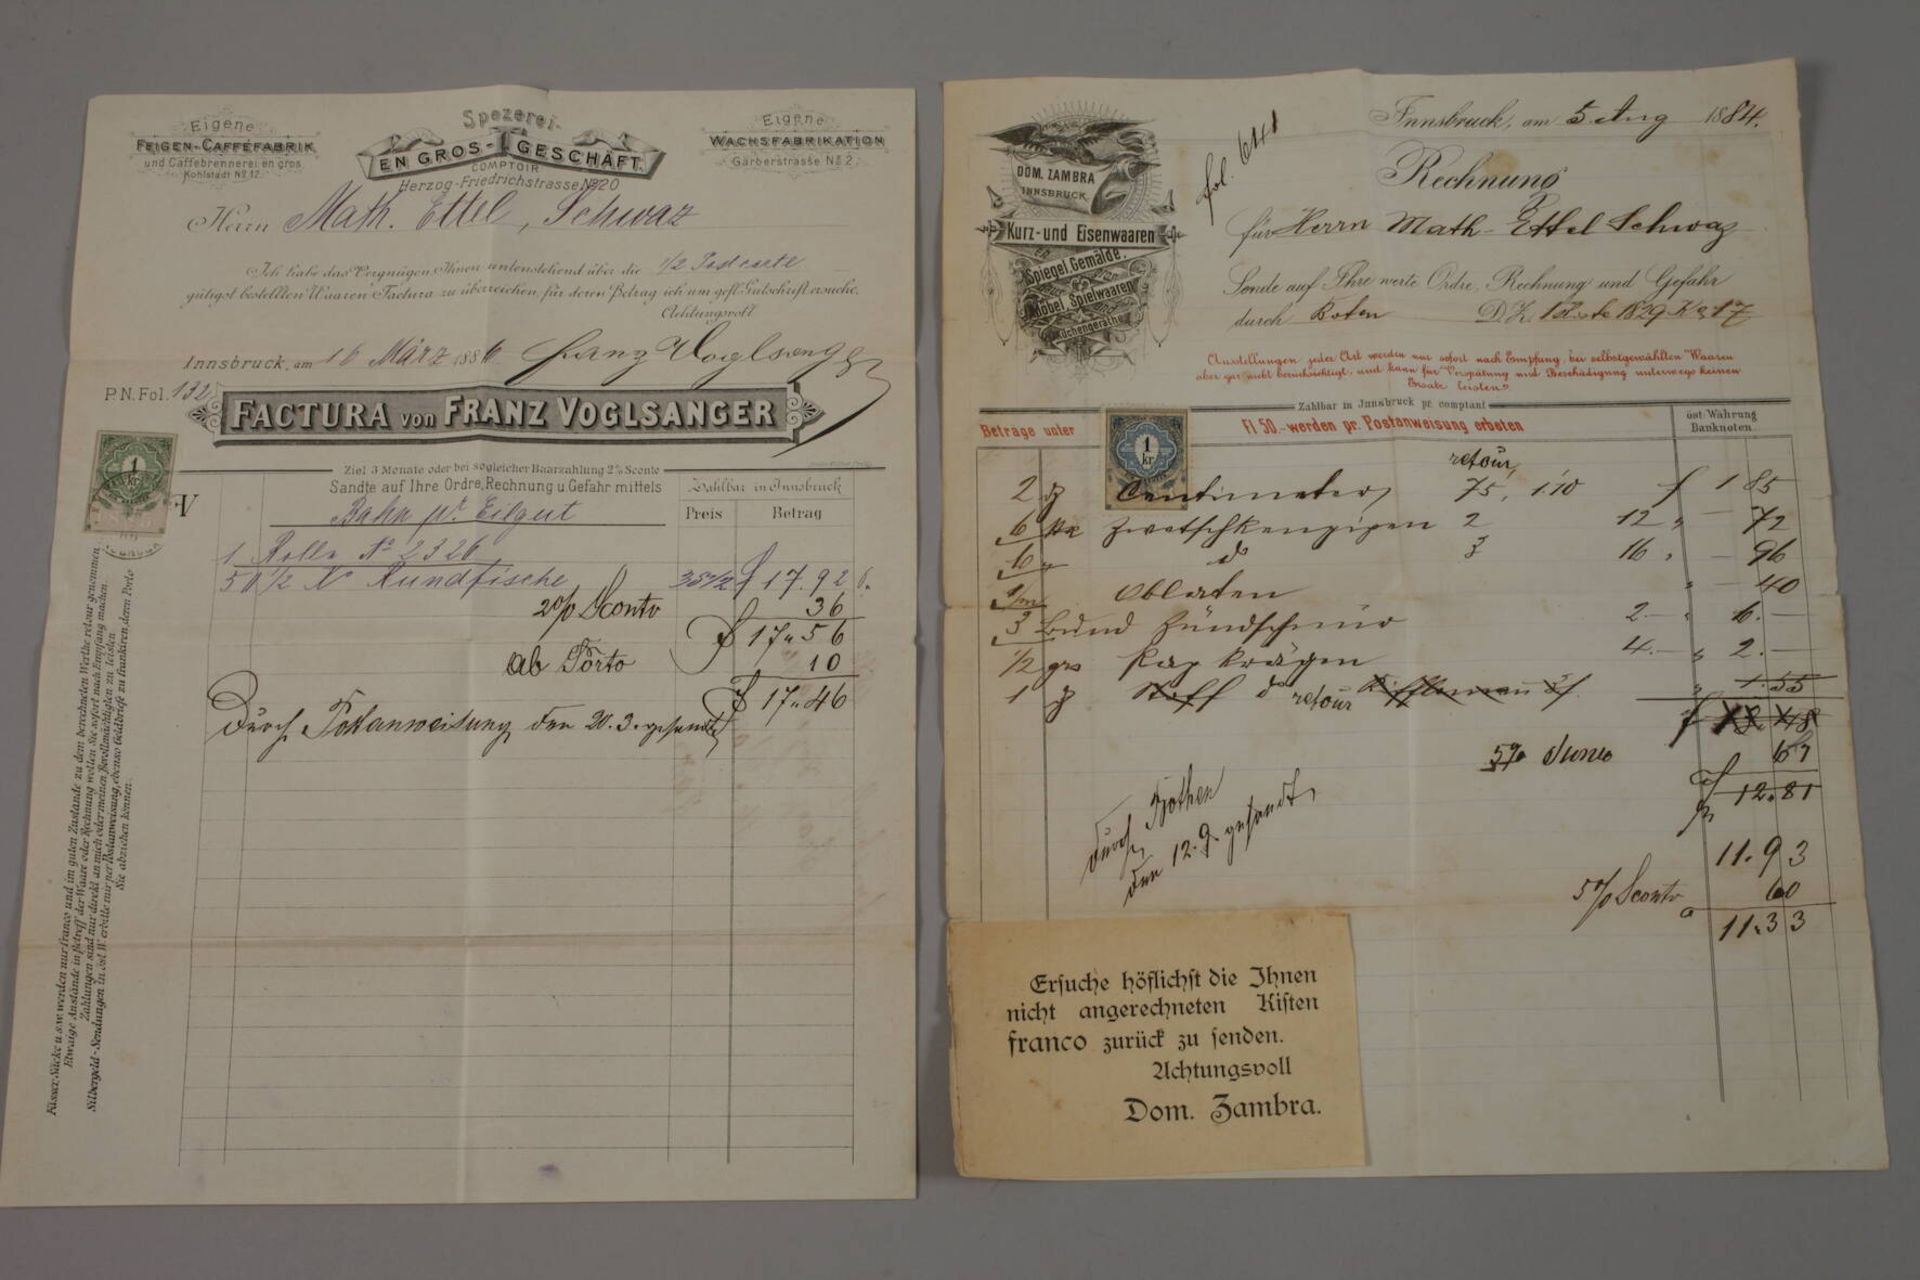 Eigene
FEIGEN-CAFFÉFABRIK
und Caffébrennerei en gros
Kohlstadt No 12.
Spezerei-
EN GROS-GESCHÄFT.
COMPTOIR
Herzog-Friedrichstrasse No 20
Eigene
WACHSFABRIKATION
Gärberstrasse No 2.
Herrn Math. Ettel, Schwaz
Ich habe das Vergnügen Ihnen untenstehend über die 1/2 Postcarte
gütigst bestellten Waaren Factura zu überreichen, für deren Betrag ich um gefl. Gutschrift ersuche.
Achtungsvoll
Innsbruck, am 16 März 1886 Franz Voglsanger
P.N. Fol. 132
FACTURA von FRANZ VOGLSANGER
1 kr
Ziel 3 Monate oder bei sogleicher Baarzahlung 2% Sconto
Sandte auf Ihre Ordre, Rechnung u. Gefahr mittels
Zahlbar in Innsbruck
Bahn pr. Eilgut
Preis Betrag
1 Rolle No 2326
50 1/2 Ko Rundfische 35 1/2 f 17.92
2% Sconto 36
f 17.56
ab Porto 10
f 17.46
Durch Postanweisung den 20.3. gesandt
Fässer, Säcke u.s.w. werden nur franco und im guten Zustande zu dem berechneten Werthe retour genommen.
Etwaige Anstände in Betreff der Waare oder Rechnung wollen Sie sofort nach Empfang machen.
Zahlungen sind nur direkt an mich oder meinen Bevollmächtigten zu leisten.
Silbergeld-Sendungen in öst. W. erbitte mir per Postanweisung, ebenso Geldbriefe zu frankiren, deren Porto
Sie abziehen können.
DOM. ZAMBRA
INNSBRUCK
Kurz- und Eisenwaaren
en
Spiegel Gemälde,
gros
Möbel, Spielwaaren
und
Küchengeräthe
fol. 641
Innsbruck, am 5 Aug 1884.
Rechnung
für Herrn Math. Ettel Schwaz
Sende auf Ihre werte Ordre, Rechnung und Gefahr
durch Boten D.Z. 1829 Ko 17
Ausstellungen jeder Art werden nur sofort nach Empfang, bei selbstgewählten Waaren
aber gar nicht berücksichtigt, und kann für Verspätung und Beschädigung unterwegs keinen
Ersatz leisten.
Zahlbar in Innsbruck pr. comptant
Beträge unter Fl 50.- werden pr. Postanweisung erbeten
öst. Währung
Banknoten.
1 kr
retour
2 Centimeter 75, 1.10 f 1 85
6 Zwetschkenzigen 2 12 " 72
6 " d 3 16 " 96
Oblaten " 40
3 Bund Zündschnür 2.- " 6.-
1/2 grs 4.- " 2.-
1 retour 1.55
5% 67
12.81
11.93
5% Sconto 60
11.33
durch Bothen
den 12.9. gesandt
Ersuche höflichst die Ihnen
nicht angerechneten Kisten
franco zurück zu senden.
Achtungsvoll
Dom. Zambra.